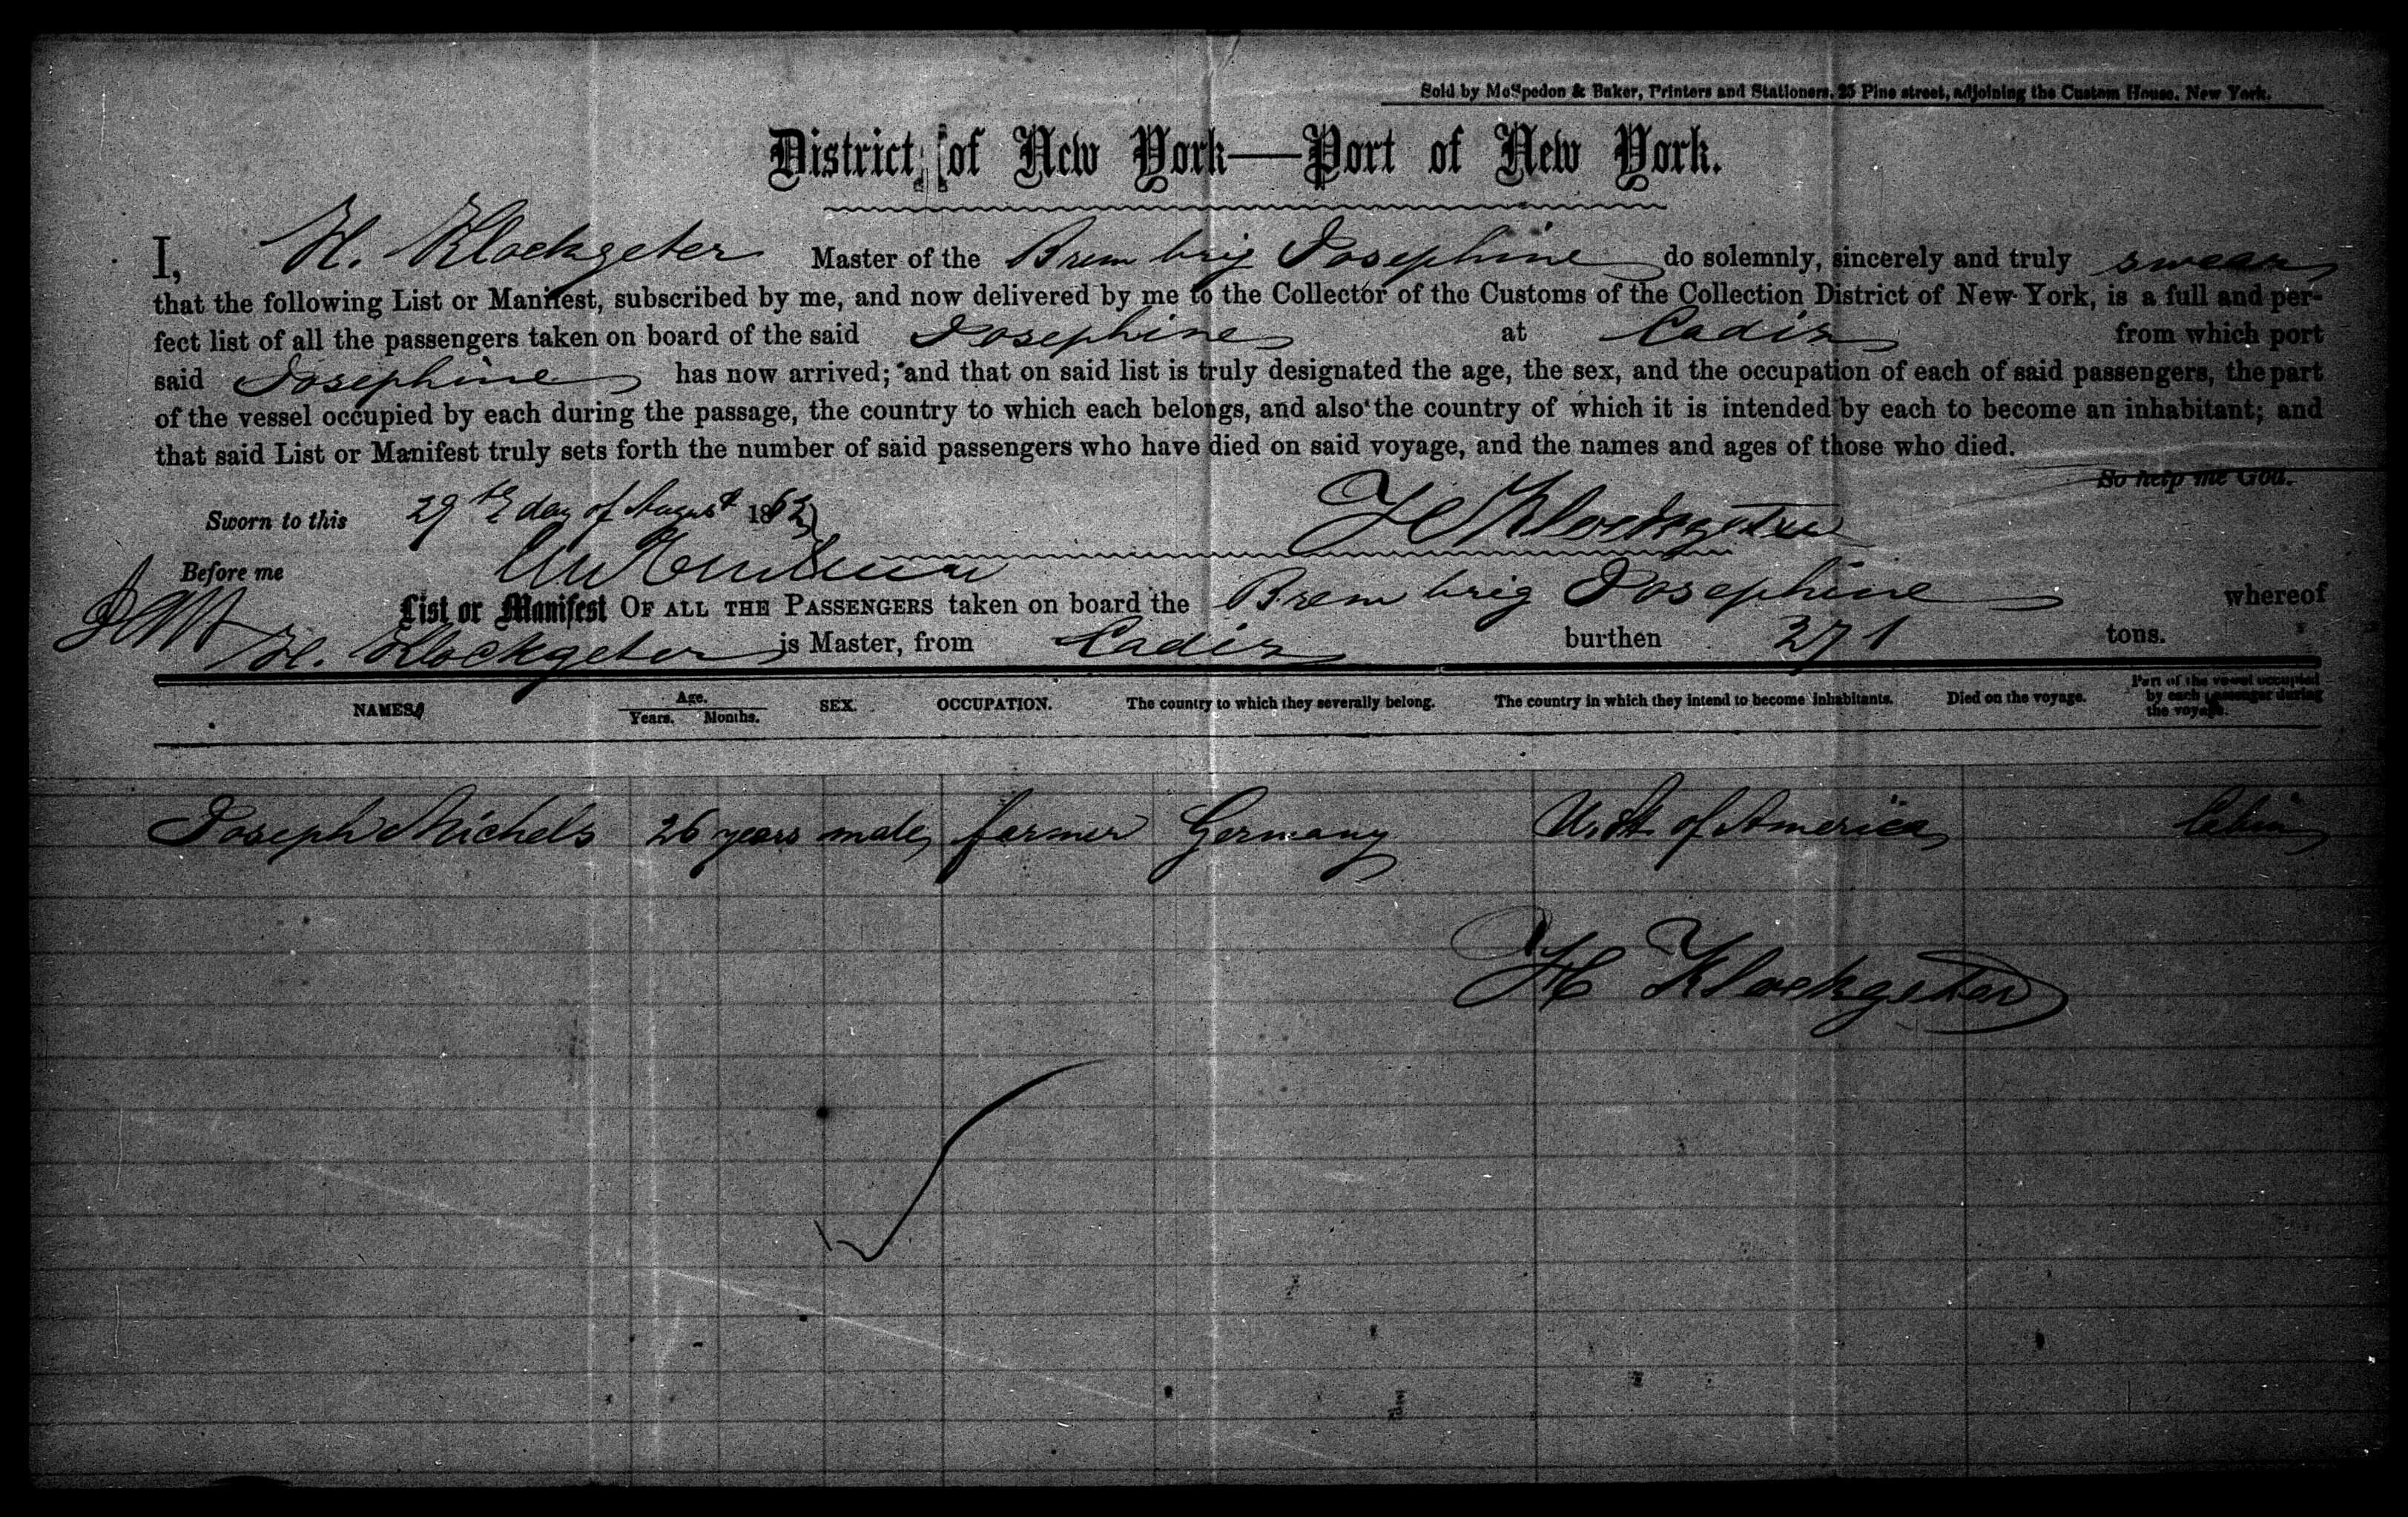 Sold by McSpedon & Baker, Printers and Stationers, 25 Pine street, adjoining the Custom House, New York.
District of New York—Port of New York.
I, H. Klockgeter Master of the Brem brig Josephine do solemnly, sincerely and truly swear
that the following List or Manifest, subscribed by me, and now delivered by me to the Collector of the Customs of the Collection District of New-York, is a full and per-
fect list of all the passengers taken on board of the said Josephine at Cadiz from which port
said Josephine has now arrived; and that on said list is truly designated the age, the sex, and the occupation of each of said passengers, the part
of the vessel occupied by each during the passage, the country to which each belongs, and also the country of which it is intended by each to become an inhabitant; and
that said List or Manifest truly sets forth the number of said passengers who have died on said voyage, and the names and ages of those who died.
So help me God.
Sworn to this 29th day of August 1862
H Klockgeter
Before me
List or Manifest OF ALL THE PASSENGERS taken on board the Brem brig Josephine whereof
H. Klockgeter is Master, from Cadiz burthen 271 tons.
NAMES Age. Years. Months. SEX. OCCUPATION. The country to which they severally belong. The country in which they intend to become inhabitants. Died on the voyage. Part of the vessel occupied by each passenger during the voyage.
Joseph Michels 26 years male farmer Germany U. St. of America Cabin
H Klockgeter